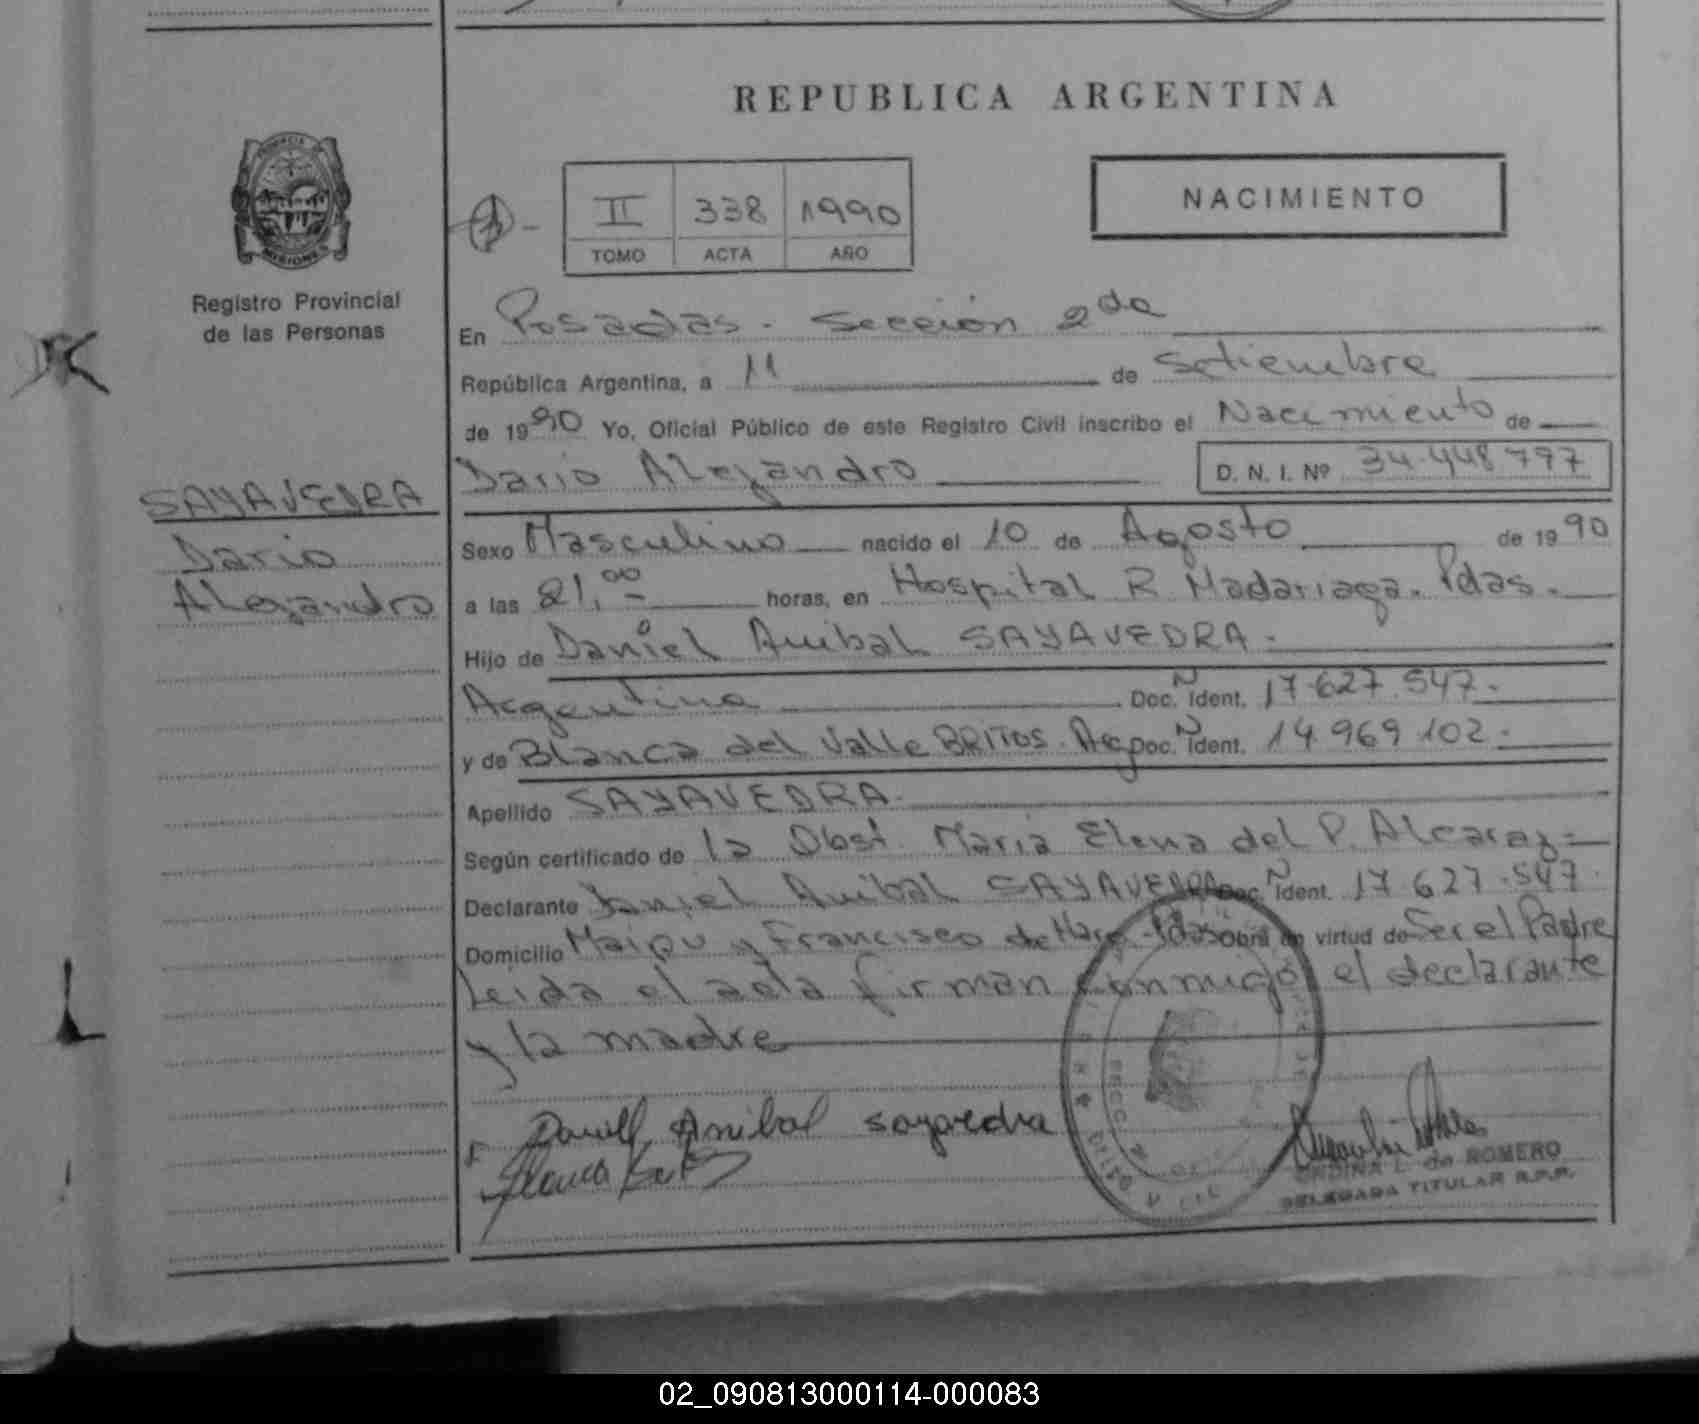 REPUBLICA ARGENTINA
NACIMIENTO
II 338 1990
TOMO ACTA AÑO
MISIONES
Registro Provincial
de las Personas
En Posadas - Sección 2da
República Argentina, a 11 de Setiembre
de 1990 Yo, Oficial Público de este Registro Civil inscribo el Nacimiento de
Dario Alejandro D. N. I. Nº 34.448797
SAYAVEDRA
Dario
Alejandro
Sexo Masculino nacido el 10 de Agosto de 1990
a las 21,00 horas, en Hospital R. Madariaga. Pdas.
Hijo de Daniel Anibal SAYAVEDRA.
Argentina Doc. N Ident. 17.627.547.
y de Blanca del Valle BRITOS. Arg Doc. N Ident. 14 969 102.
Apellido SAYAVEDRA.
Según certificado de la Obst. Maria Elena del P. Alcaraz
Declarante Daniel Anibal SAYAVEDRA Doc. N Ident. 17 627.547.
Domicilio Maipu y Francisco de Haro - Pdas Obra en virtud de Ser el Padre
Leida el acta firman conmigo el declarante
y la madre
Daniel Anibal Sayavedra
ONDINA L. de ROMERO
DELEGADA TITULAR R.P.P.
02_090813000114-000083